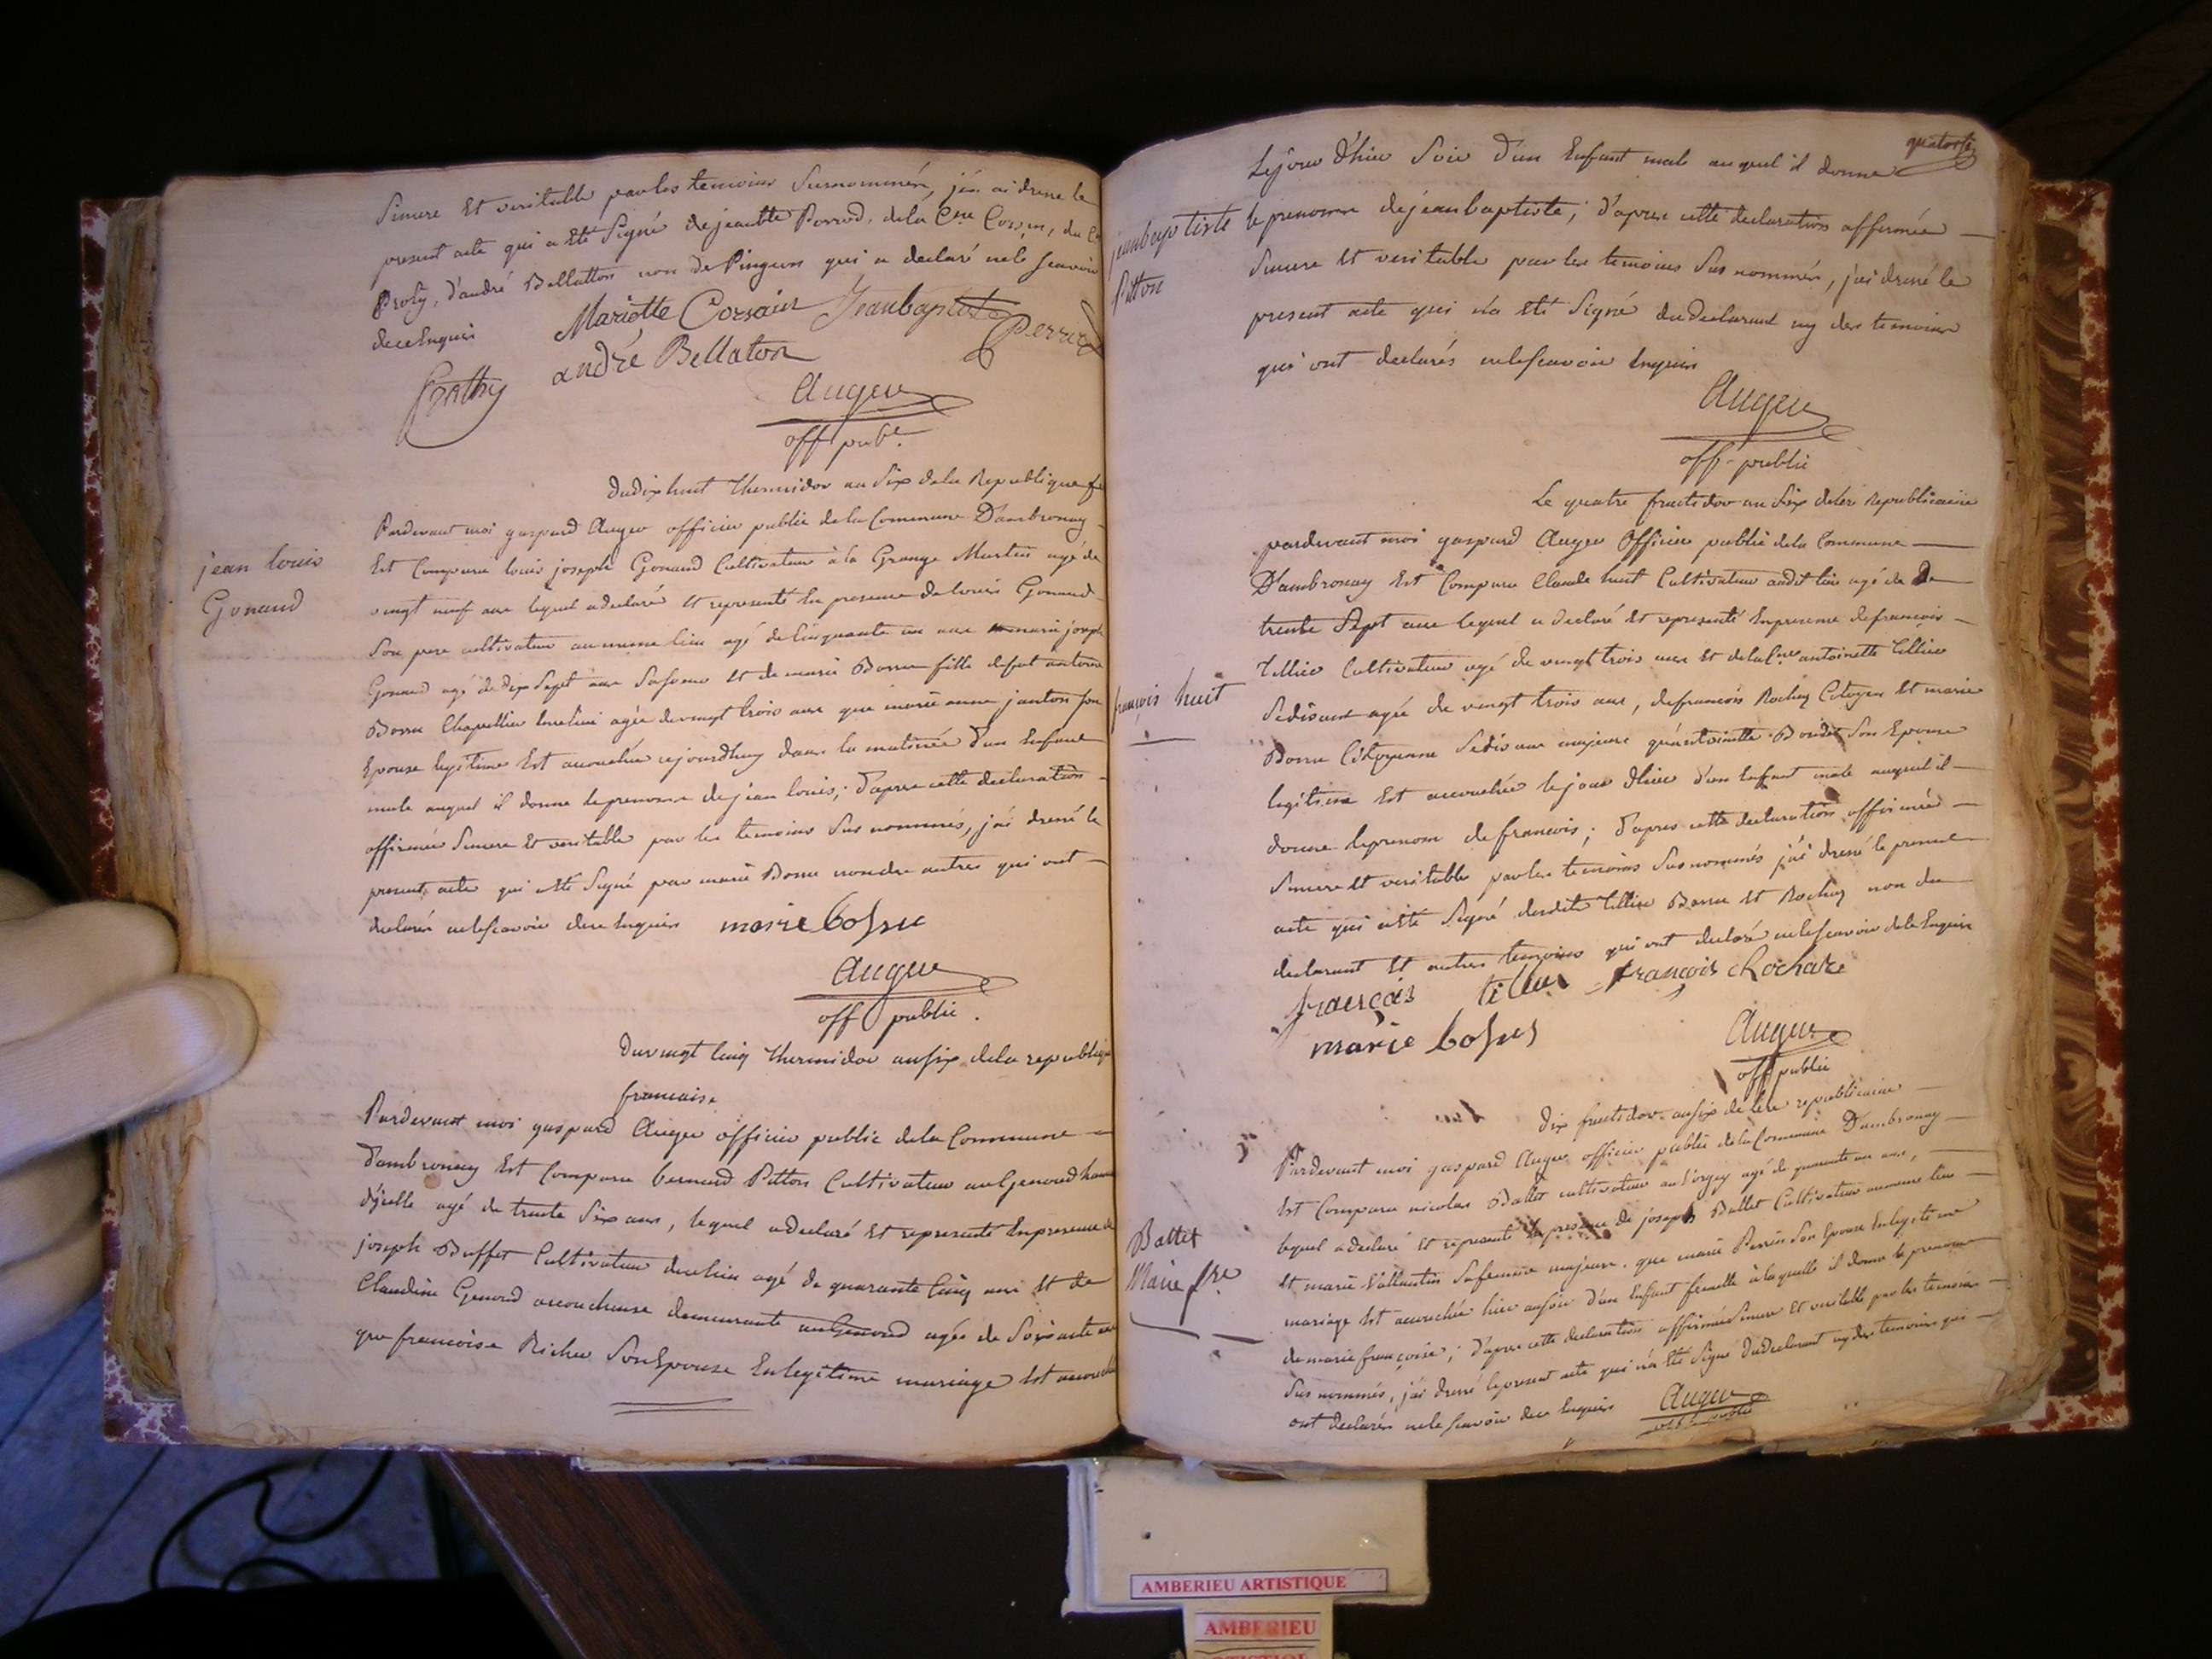 Sincere Et veritable par les temoins Surnommés, j'en ai dressé le
present acte qui a eté Signé de jean bte Perrod, de la Cne Corsin, du Cn
d'andré Bellatton non de Pingeon qui a declaré ne le scavoir
de ce Enquis
Mariette Corsain Jeanbaptiste Perrod
andré Bellaton
Auger
off pubc.
Du dix huit thermidor an Six de la Republique
Pardevant moi gaspard Auger officier public de la Commune D'ambronay
jean louis
Gonaud
Est Comparu louis joseph Gonaud Cultivateur à la Grange Martin agé de
vingt neuf ans lequel a declaré Et representé En presence de louis Gonaud
Son pere cultivateur au meme lieu agé de Cinquante un ans marie joseph
Gonaud agé de dix Sept ans Sa Soeur Et de marie Bossu fille de fut antoine
Bossu Chapellier agée de vingt trois ans que marie anne janton Son
Epouse legitime Est accouchée ajourdhuy dans la matinée d'un Enfant
male auquel il donne le prenom de jean louis; d'apres cette declaration
affirmée Sincere Et veritable par les temoins Sus nommés, j'ai dressé le
present acte qui a eté Signé par marie Bossu non des autres qui ont
declarés ne le scavoir de ce Enquis marie bossu
Auger
off public.
Du vingt Cinq thermidor an six de la republique
francaise
Pardevant moi gaspard Auger officier public de la Commune
d'ambronay Est Comparu bernard Pitton Cultivateur au Genoud hameau
agé de trente Six ans, lequel a declaré Et representé En presence de
joseph Buffet Cultivateur du lieu agé de quarante Cinq ans Et de
Claudine Genoud accoucheuse demeurante au Genoud agée de Soixante ans
que francoise Richer Son Epouse En legitime mariage Est accouchée
quatorze
Le jour d'hier Soir d'un Enfant male auquel il donne
jeanbaptiste
Pitton
le prenom de jean baptiste; d'apres cette declaration affirmée
Sincere Et veritable par les temoins Sus nommés, j'ai dressé le
present acte qui n'a eté Signé du declarant ny des temoins
qui ont declarés ne le scavoir Enquis
Auger
off public
Le quatre fructidor an Six de l'ere Republicaine
pardevant moi gaspard Auger Officier public de la Commune
D'ambronay Est Comparu Claude huit Cultivateur audit lieu agé de
trente Sept ans lequel a declaré Et representé En presence de francois
tillier Cultivateur agé de vingt trois ans Et de la Cne antoinette tillier
françois huit
Se disant agée de vingt trois ans, de francois Rochay Citoyen Et marie
Bossu Citoyenne Se disant majeure qu'antoinette Son Epouse
legitime Est accouchée le jour d'hier d'un Enfant male auquel il
donne le prenom de francois; d'apres cette declaration affirmée
Sincere Et veritable par les temoins Sus nommés j'ai dressé le present
acte qui a eté Signé desdits tillier Bossu Et Rochay non du
declarant Et autres temoins qui ont declaré ne le scavoir de ce Enquis
françois tillier françois Rochaix
marie bossus
Auger
off public
Dix fructidor an six de l'ere republicaine
Pardevant moi gaspard Auger officier public de la Commune D'ambronay
Est Comparu nicolas Ballet cultivateur agé de quarante un ans,
lequel a declaré Et representé En presence de joseph Ballet Cultivateur au meme lieu
Ballet
Marie fse
Et marie Vallantin Sa femme majeurs, que marie Perrin Son Epouse En legitime
mariage Est accouchée hier au soir d'un Enfant femelle à laquelle il donne le prenom
de marie françoise; d'apres cette declaration affirmée Sincere Et veritable par les temoins
Sus nommés, j'ai dressé le present acte qui n'a eté Signé du declarant ny des temoins qui
ont declarés ne le scavoir de ce Enquis
Auger
off public
AMBERIEU ARTISTIQUE
AMBERIEU